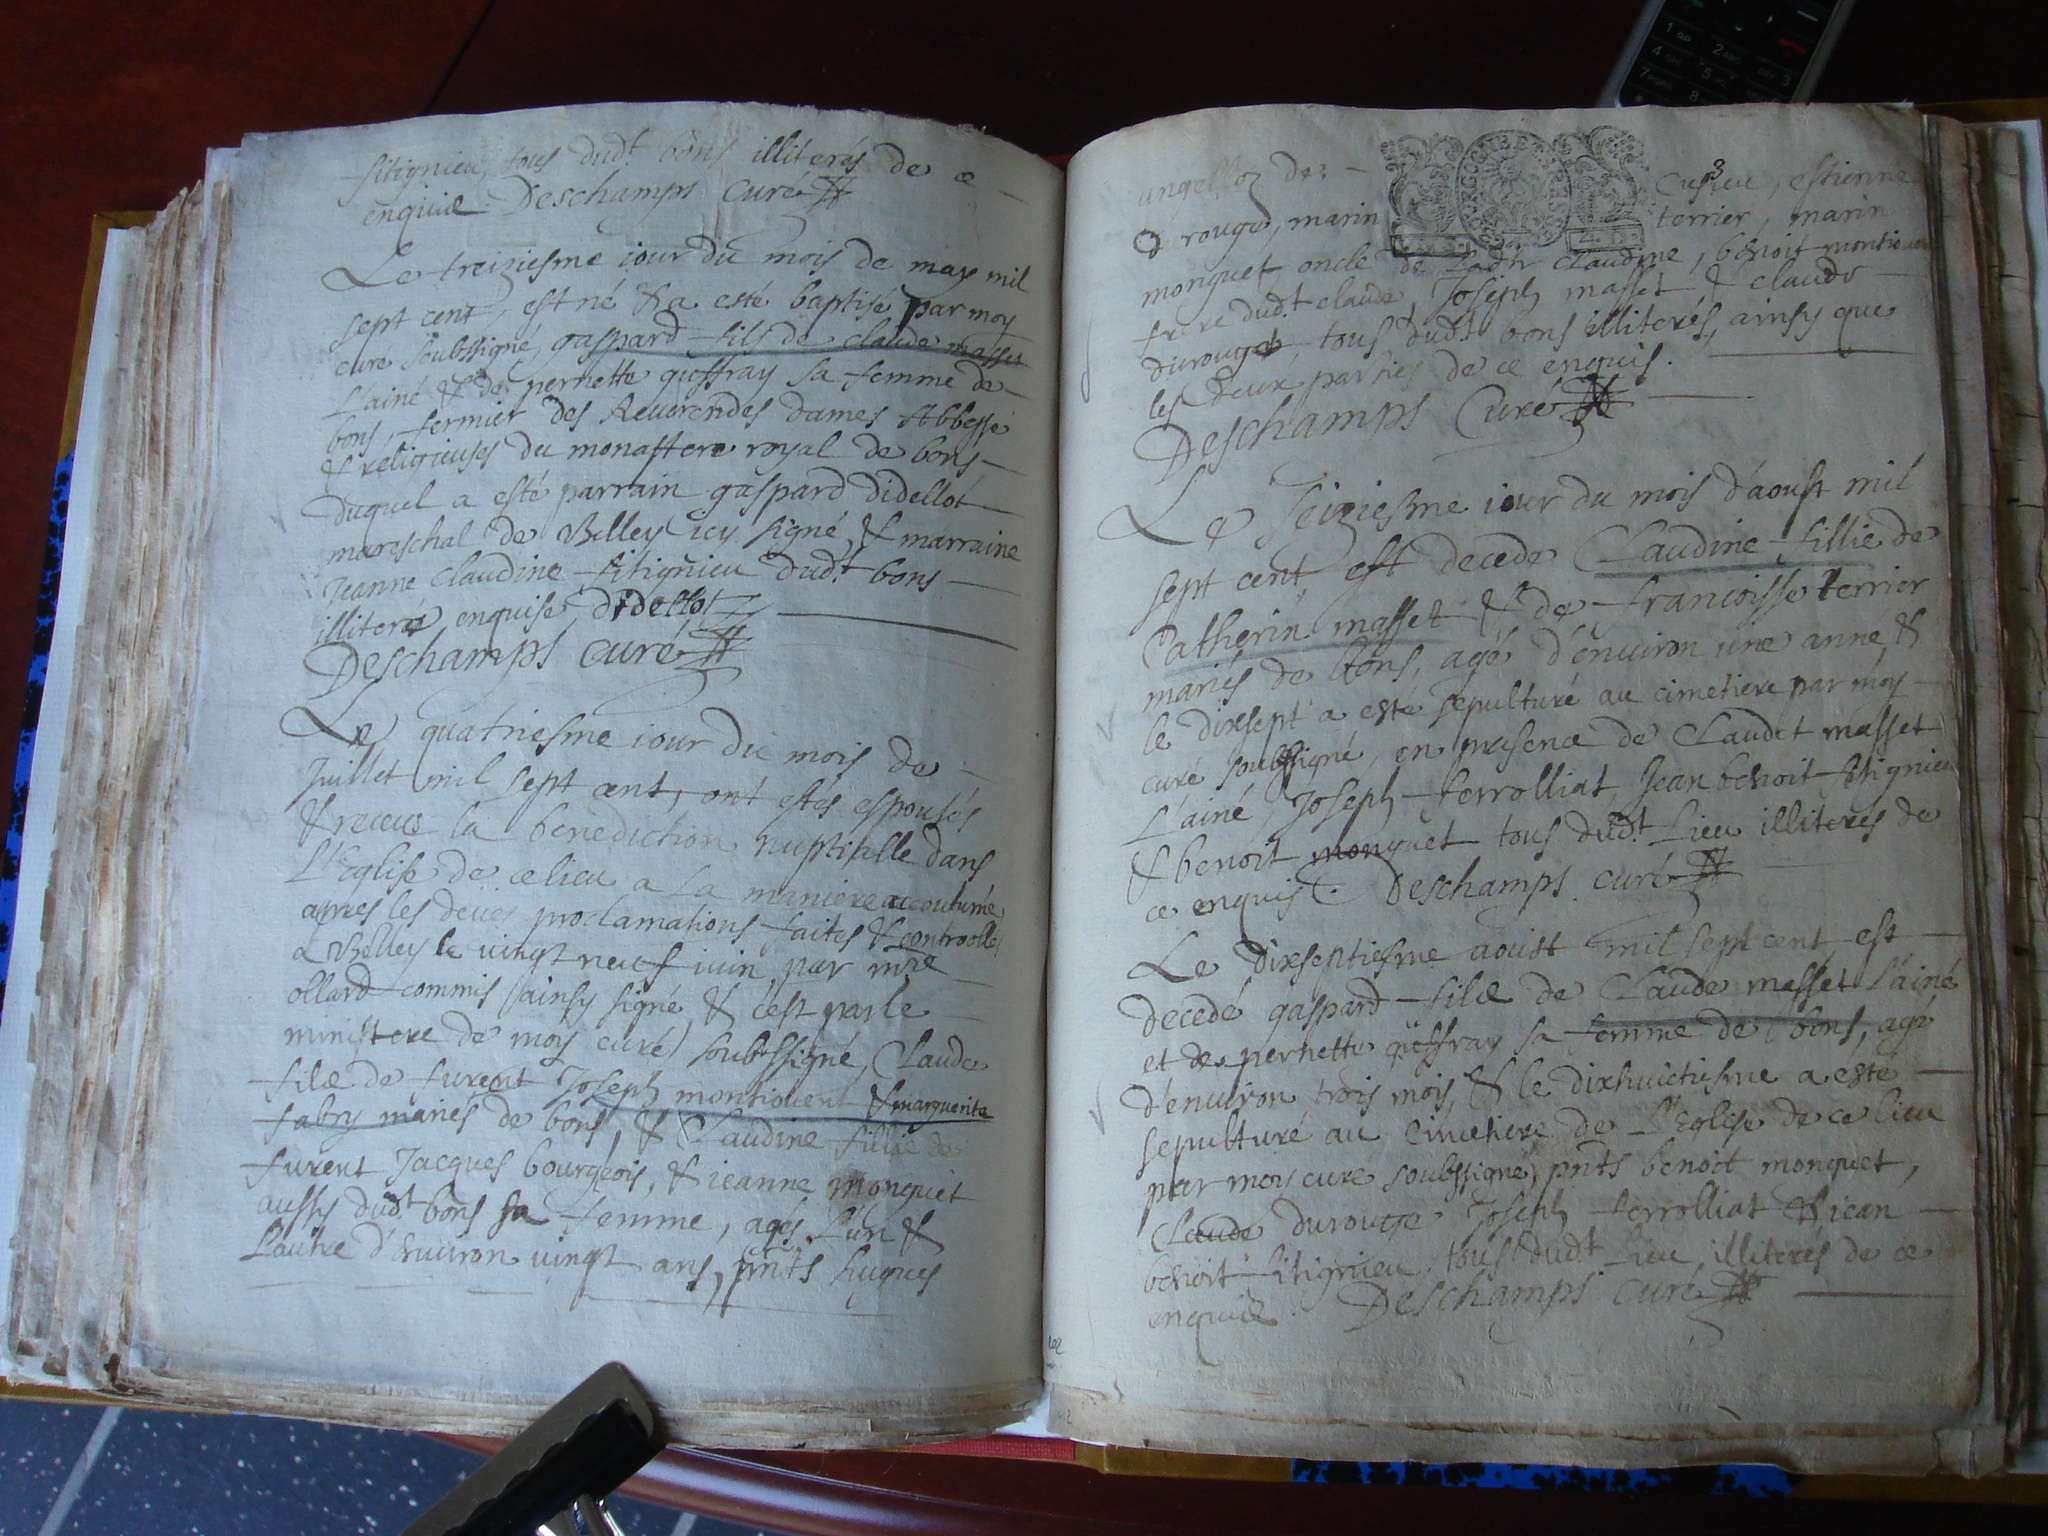 fitignieu, tous dudt bons illiterés de ce
enquis Deschamps Curé
Le treiziesme iour du mois de may mil
sept cent, est né & a esté baptisé par moy
curé soubssigné, gaspard fils de claude masset
L'ainé & de pernette guffray sa femme de
bons, fermier des Reuerendes dames Abbesse
& religieuses du monastere royal de bons
duquel a esté parrain gaspard didellot
mareschal de Belley icy signé, & marraine
Jeanne Claudine fitignieu dudt bons
illiteré enquise, didellot
Deschamps curé
Le quatriesme iour du mois de
Juillet mil sept cent, ont estés espousés
& receus la benediction nuptialle dans
L'Eglise de ce lieu a la maniere accoutumé
apres les deues proclamations faites & controollés
a Belley le vingt neuf iuin par mre
ollard commis ainsy signé, & c'est par le
ministere de moy curé soubssigné, Claude
filz de furent Joseph montiouent & marguerite
fabry mariés de bons, & Claudine fillie de
furent Jacques bourgeois, & ieanne monquet
aussy dudt bons sa femme, agés L'un &
L'autre d'enuiron vingt ans, pnts hugues
angelloz de Cusieu, estienne
durouge, marin terrier, marin
monquet oncle de Ladte Claudine, benoit montiouent
frere dudt claude, Joseph masset & claude
durouge, tous dudt bons illiterés, ainsy que
les deux parties de ce enquis.
Deschamps Curé
Le seiziesme iour du mois d'aoust mil
sept cent, est decede Claudine fillie de
Catherin masset & de francoisse terrier
mariés de bons, agé d'enuiron une anné, &
le dixsept a esté sepulturé au cimetiere par moy
curé soubssigné, en presence de Claudet masset
L'ainé, Joseph ferrolliat, Jean benoit fitignieu
& benoit monquet tous dudt Lieu illiterés de
ce enquis. Deschamps curé
Le dixseptiesme aoust mil sept cent est
decedé gaspard filz de Claude masset L'ainé
et de pernette guffray sa femme de bons, agé
d'enuiron trois mois, & le dixhuictiesme a esté
sepulturé au cimetiere de L'Eglise de ce lieu
par moy curé soubssigné, pnts benoit monquet,
Claude durouge Joseph ferrolliat & iean
benoit fitignieu, tous dudt lieu illiterés de ce
enquis. Deschamps curé
102